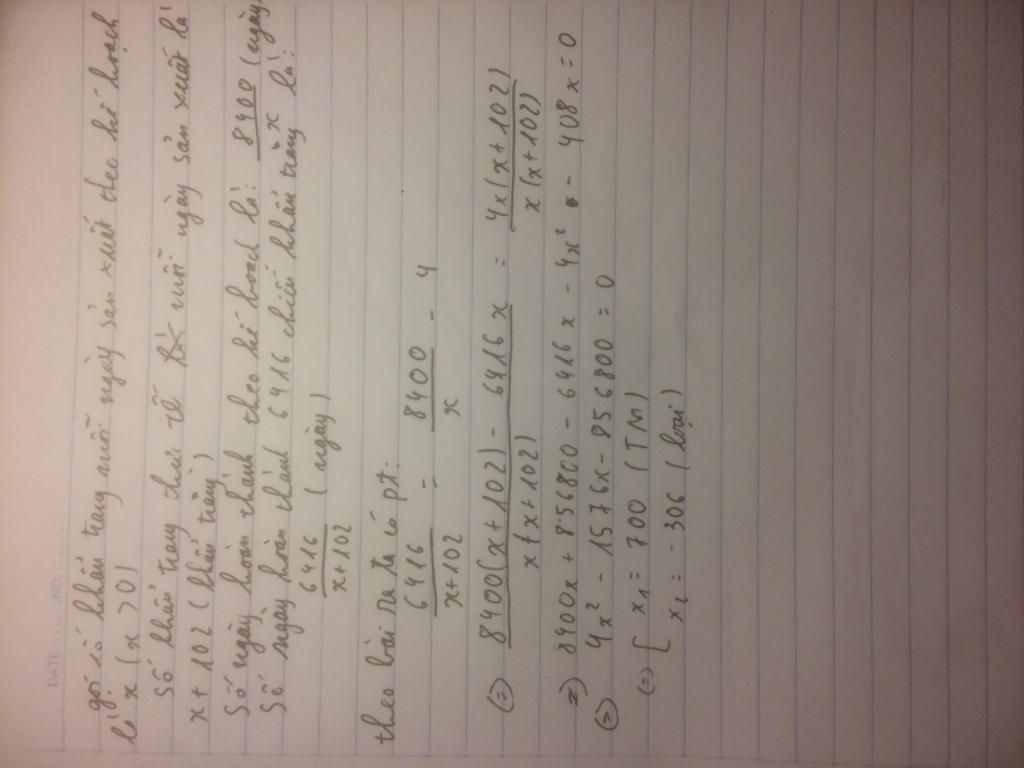 DATE............NO...........
gọi số khẩu trang mỗi ngày sản xuất theo kế hoạch
là x (x > 0)
Số khẩu trang thực tế mỗi ngày sản xuất là
x + 102 (khẩu trang)
Số ngày hoàn thành theo kế hoạch là: 8400/x (ngày
Số ngày hoàn thành 6416 chiếc khẩu trang là:
6416/x+102 (ngày)
theo bài ra ta có pt:
6416/x+102 = 8400/x - 4
(=) 8400(x+102) - 6416x/x(x+102) = 4x(x+102)/x(x+102)
=) 8400x + 856800 - 6416x - 4x² - 408x = 0
(=) 4x² - 1576x - 856800 = 0
(=) [ x₁ = 700 (TM)
x₂ = -306 (loại)